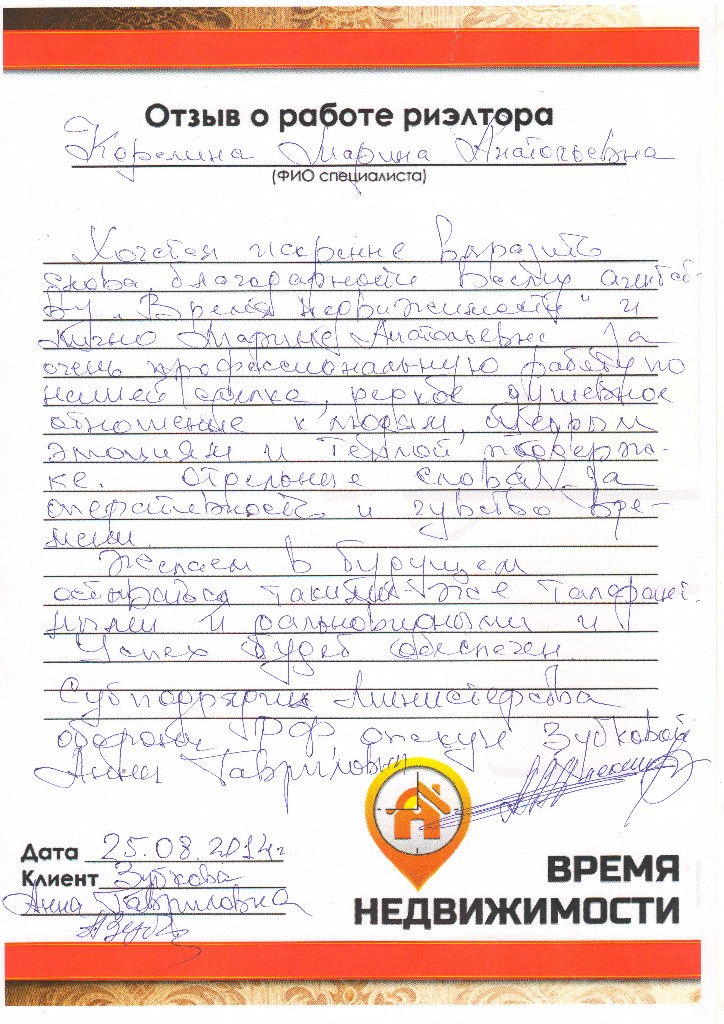 Отзыв о работе риэлтора
Карелина Марина Анатольевна
(ФИО специалиста)
Хочется искренне выразить
слова благодарности Вашему агентст-
ву „Время недвижимости“ и
лично Марине Анатольевне за
очень профессиональную работу по
нашей сделке, редкое душевное
отношение к людям,
эмоциям и теплой поддерж-
ке. Отдельные слова за
оперативность и чувство вре-
мени.
Желаем в будущем
оставаться такими же талант-
ными и дальновидными и
Успех будет обеспечен.
Субподрядчик Министерства
обороны РФ опекун Зубковой
Анны Гавриловны
Дата 25.08.2014г
Клиент Зубкова
Анна Гавриловна
ВРЕМЯ
НЕДВИЖИМОСТИ